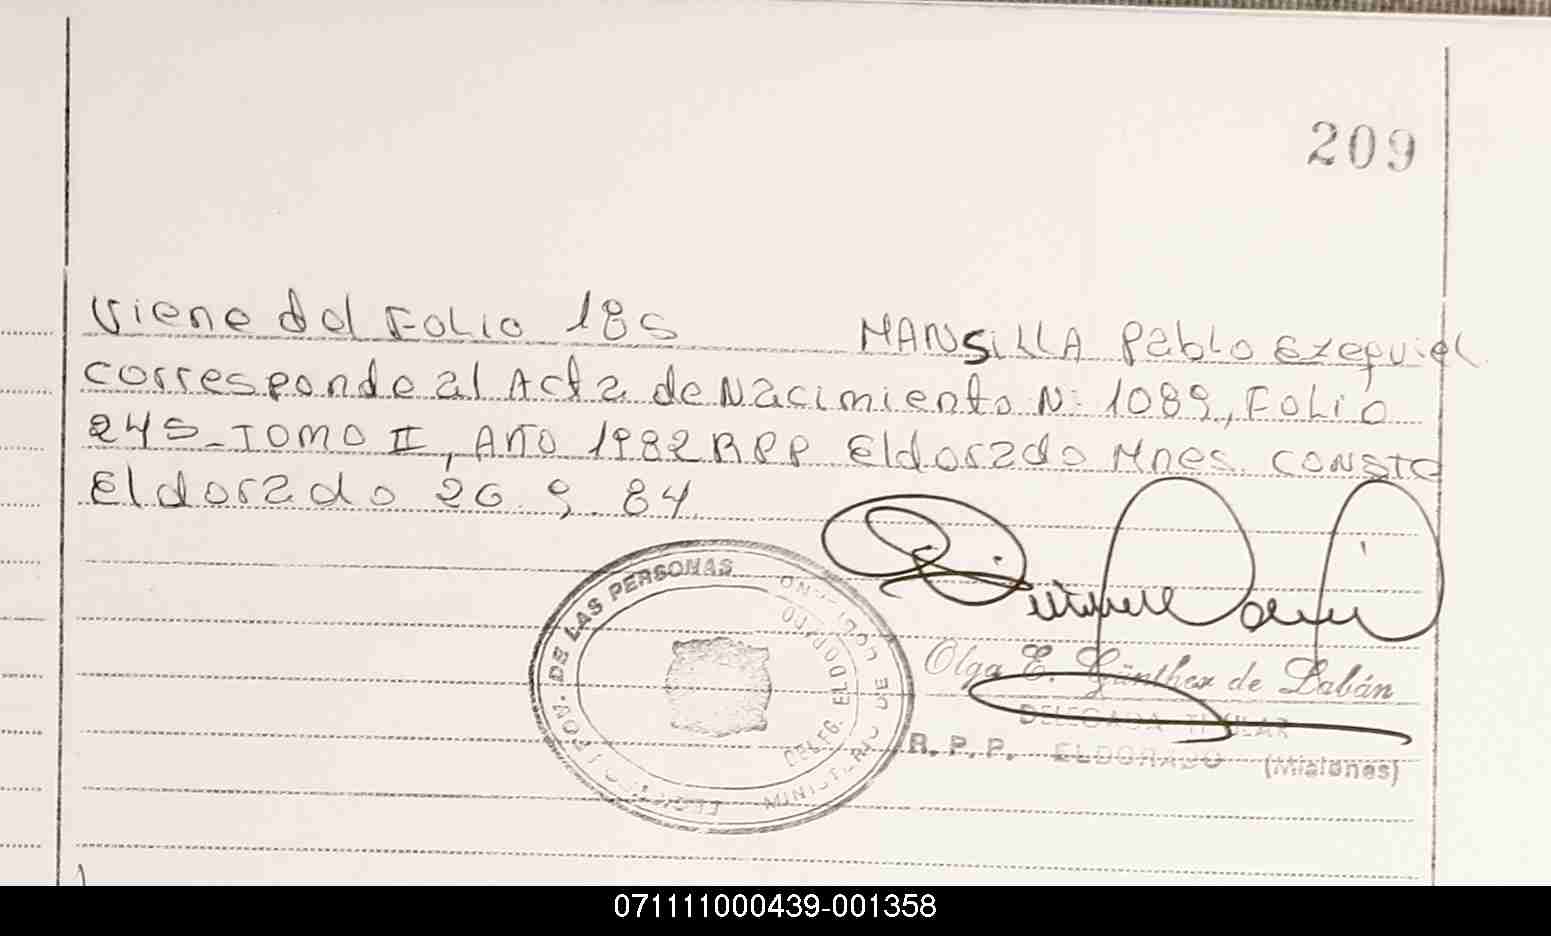 209
Viene del Folio 185 MANSILLA Pablo Ezequiel
corresponde al Acta de Nacimiento N: 1089, Folio
245 - TOMO II, Año 1982 RPP Eldorado Mnes. CONSTE
Eldorado 26.9.84
DE LAS PERSONAS
DELEG. ELDORADO
Olga E. Günther de Labán
DELEGADA TITULAR
R.P.P. ELDORADO (Misiones)
071111000439-001358